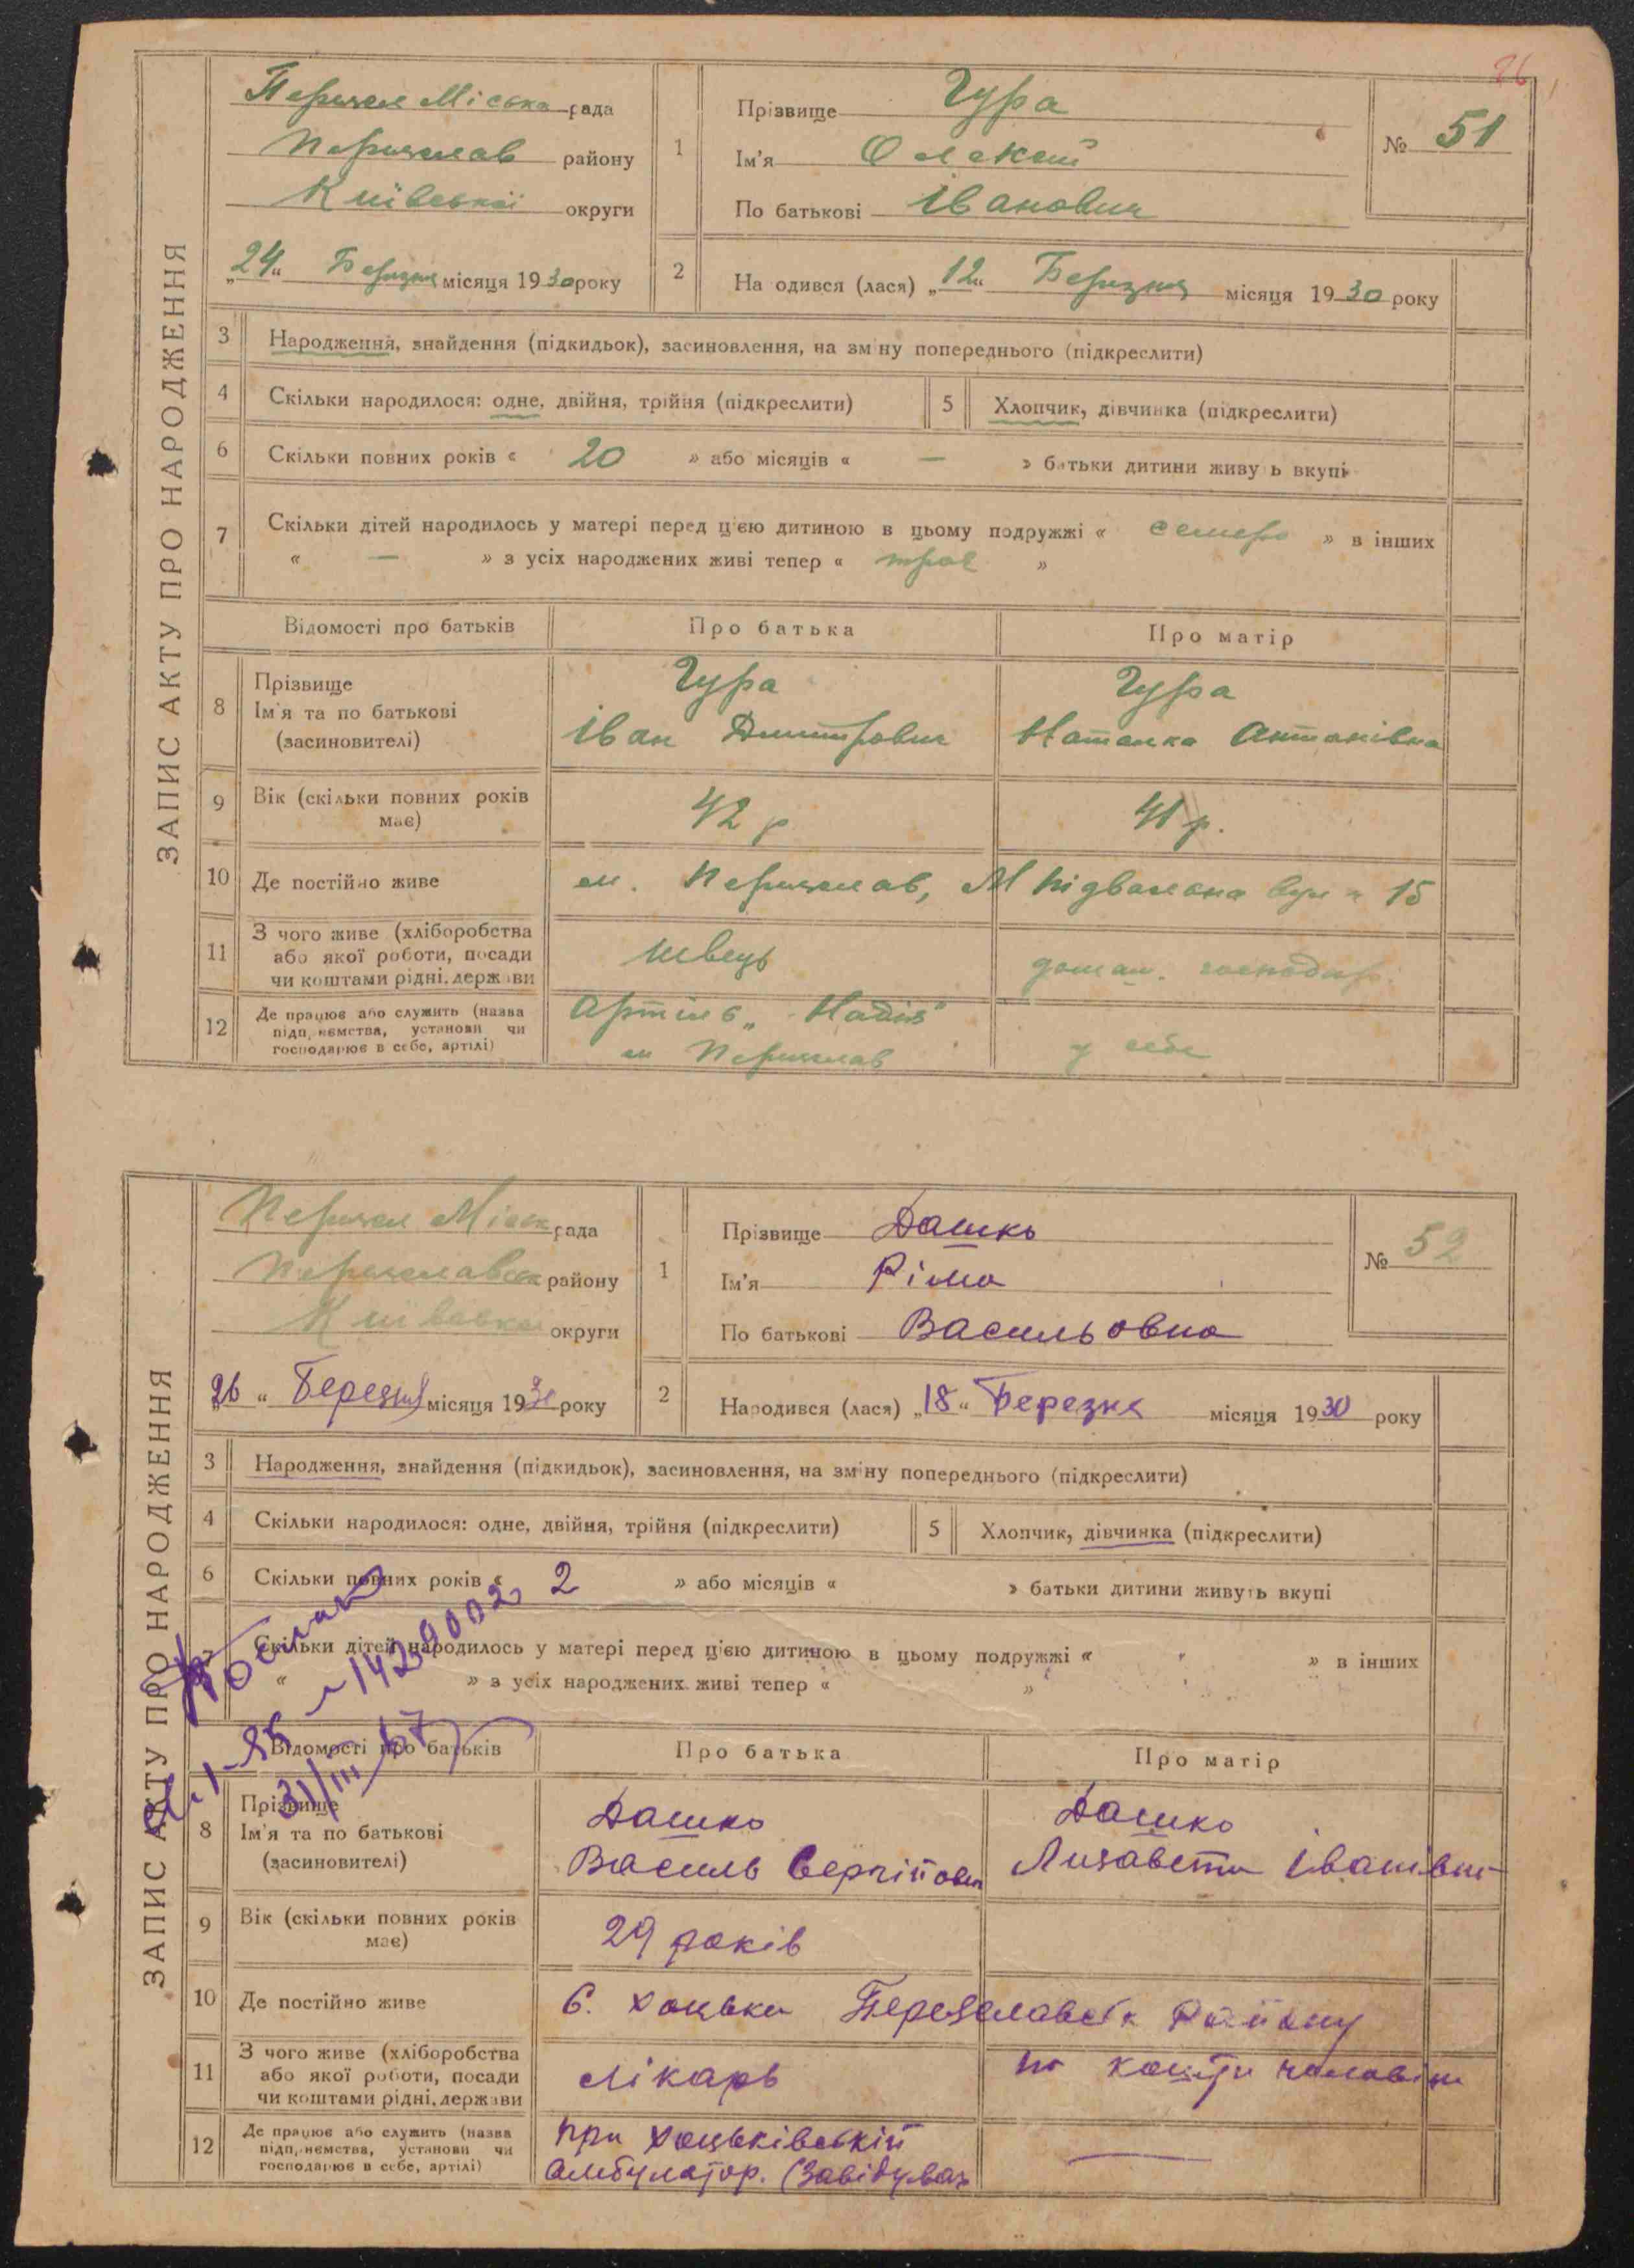 86
ЗАПИС АКТУ ПРО НАРОДЖЕННЯ
Переясл Міська рада
Переяслав району
Київської округи
„24“ Березня місяця 1930 року
1
Прізвище Гура
Ім'я Олексій
По батькові Іванович
№ 51
2
На одився (лася) „12“ Березня місяця 1930 року
3 Народження, знайдення (підкидьок), засиновлення, на зміну попереднього (підкреслити)
4 Скільки народилося: одне, двійня, трійня (підкреслити)
5 Хлопчик, дівчинка (підкреслити)
6 Скільки повних років « 20 » або місяців « — » батьки дитини живуть вкупі
7 Скільки дітей народилось у матері перед цією дитиною в цьому подружжі « семеро » в інших
« — » з усіх народжених живі тепер « троє »
Відомості про батьків Про батька Про матір
8 Прізвище Гура Гура
Ім'я та по батькові Іван Дмитрович Наталка Антонівна
(засиновителі)
9 Вік (скільки повних років має) 42 р 41 р.
10 Де постійно живе м. Переяслав, М Підвальна вул 15
11 З чого живе (хліборобства
або якої роботи, посади швець домаш. господар.
чи коштами рідні, держави
12 Де працює або служить (назва Артіль „Надія“
підприємства, установи чи м Переяслав у себе
господарює в себе, артілі)
ЗАПИС АКТУ ПРО НАРОДЖЕННЯ
Переясл Міськ рада
Переяславськ району
Київської округи
„26“ Березня місяця 1930 року
1
Прізвище Дашко
Ім'я Ріма
По батькові Васильовна
№ 52
2
Народився (лася) „18“ Березня місяця 1930 року
3 Народження, знайдення (підкидьок), засиновлення, на зміну попереднього (підкреслити)
4 Скільки народилося: одне, двійня, трійня (підкреслити)
5 Хлопчик, дівчинка (підкреслити)
6 Скільки повних років « 2 » або місяців « » батьки дитини живуть вкупі
7 Скільки дітей народилось у матері перед цією дитиною в цьому подружжі « » в інших
« » з усіх народжених живі тепер « »
31/III 67
Відомості про батьків Про батька Про матір
8 Прізвище Дашко Дашко
Ім'я та по батькові Василь Сергійович Лизавета Іванівна
(засиновителі)
9 Вік (скільки повних років має) 29 років
10 Де постійно живе с. Хоцьки Переяславськ Району
11 З чого живе (хліборобства
або якої роботи, посади лікарь на кошти чоловіка
чи коштами рідні, держави
12 Де працює або служить (назва при Хоцьківській
підприємства, установи чи амбулатор. (Завідувач —
господарює в себе, артілі)